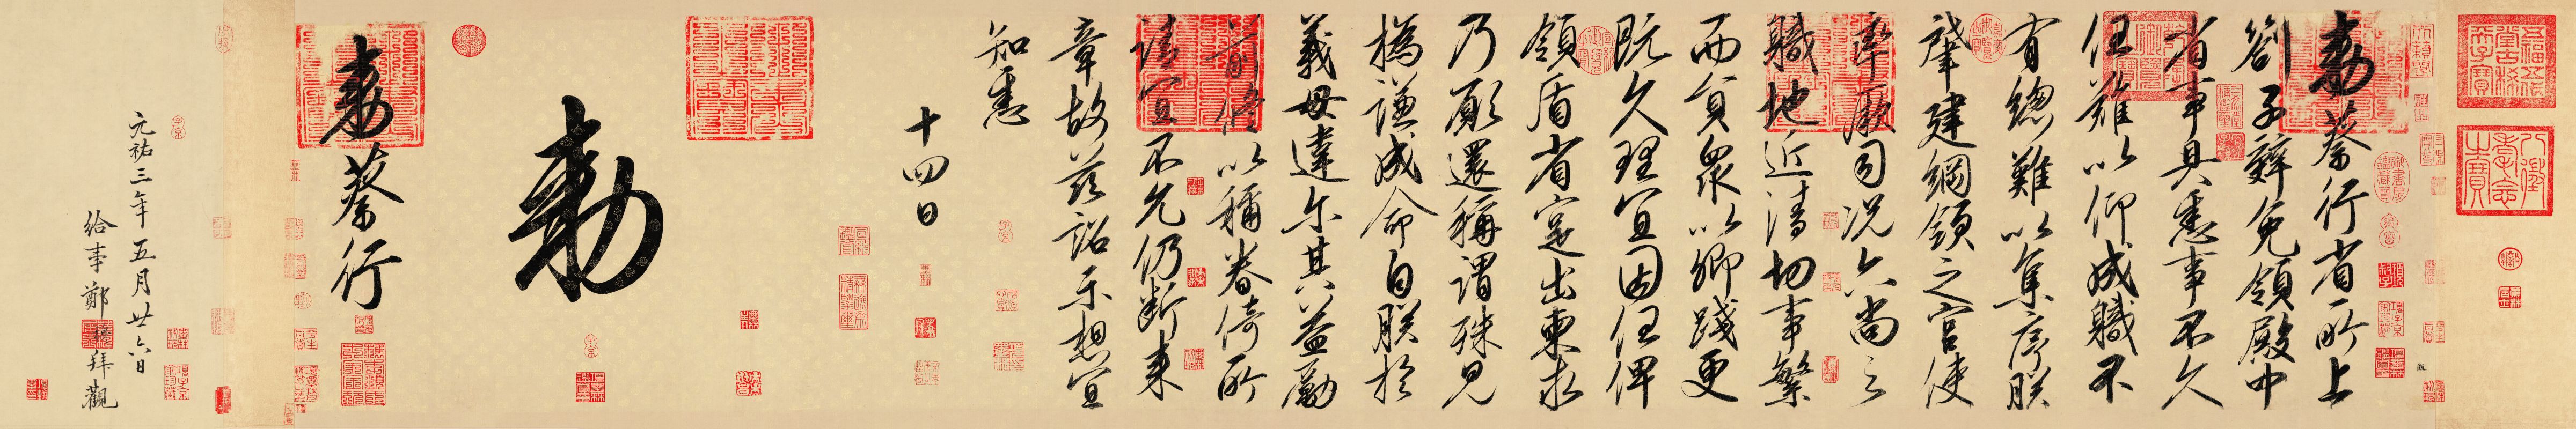 敕蔡行省所上
劄子辭免領殿中
省事具悉事不久
任難以仰成職不
有總難以集序朕
肇建綱領之官使
率厥司況六尚之
職地近清切事繁
而員眾以卿踐更
既久理宜因任俾
領盾省寔出柬求
乃願還稱謂殊見
撝謙成命自朕於
義毋違爾其益勵
前修以稱眷倚所
請宜不允仍斷來
章故茲詔示想宜
知悉
十四日
敕
敕蔡行
元祐三年五月廿六日
給事鄭穆拜觀